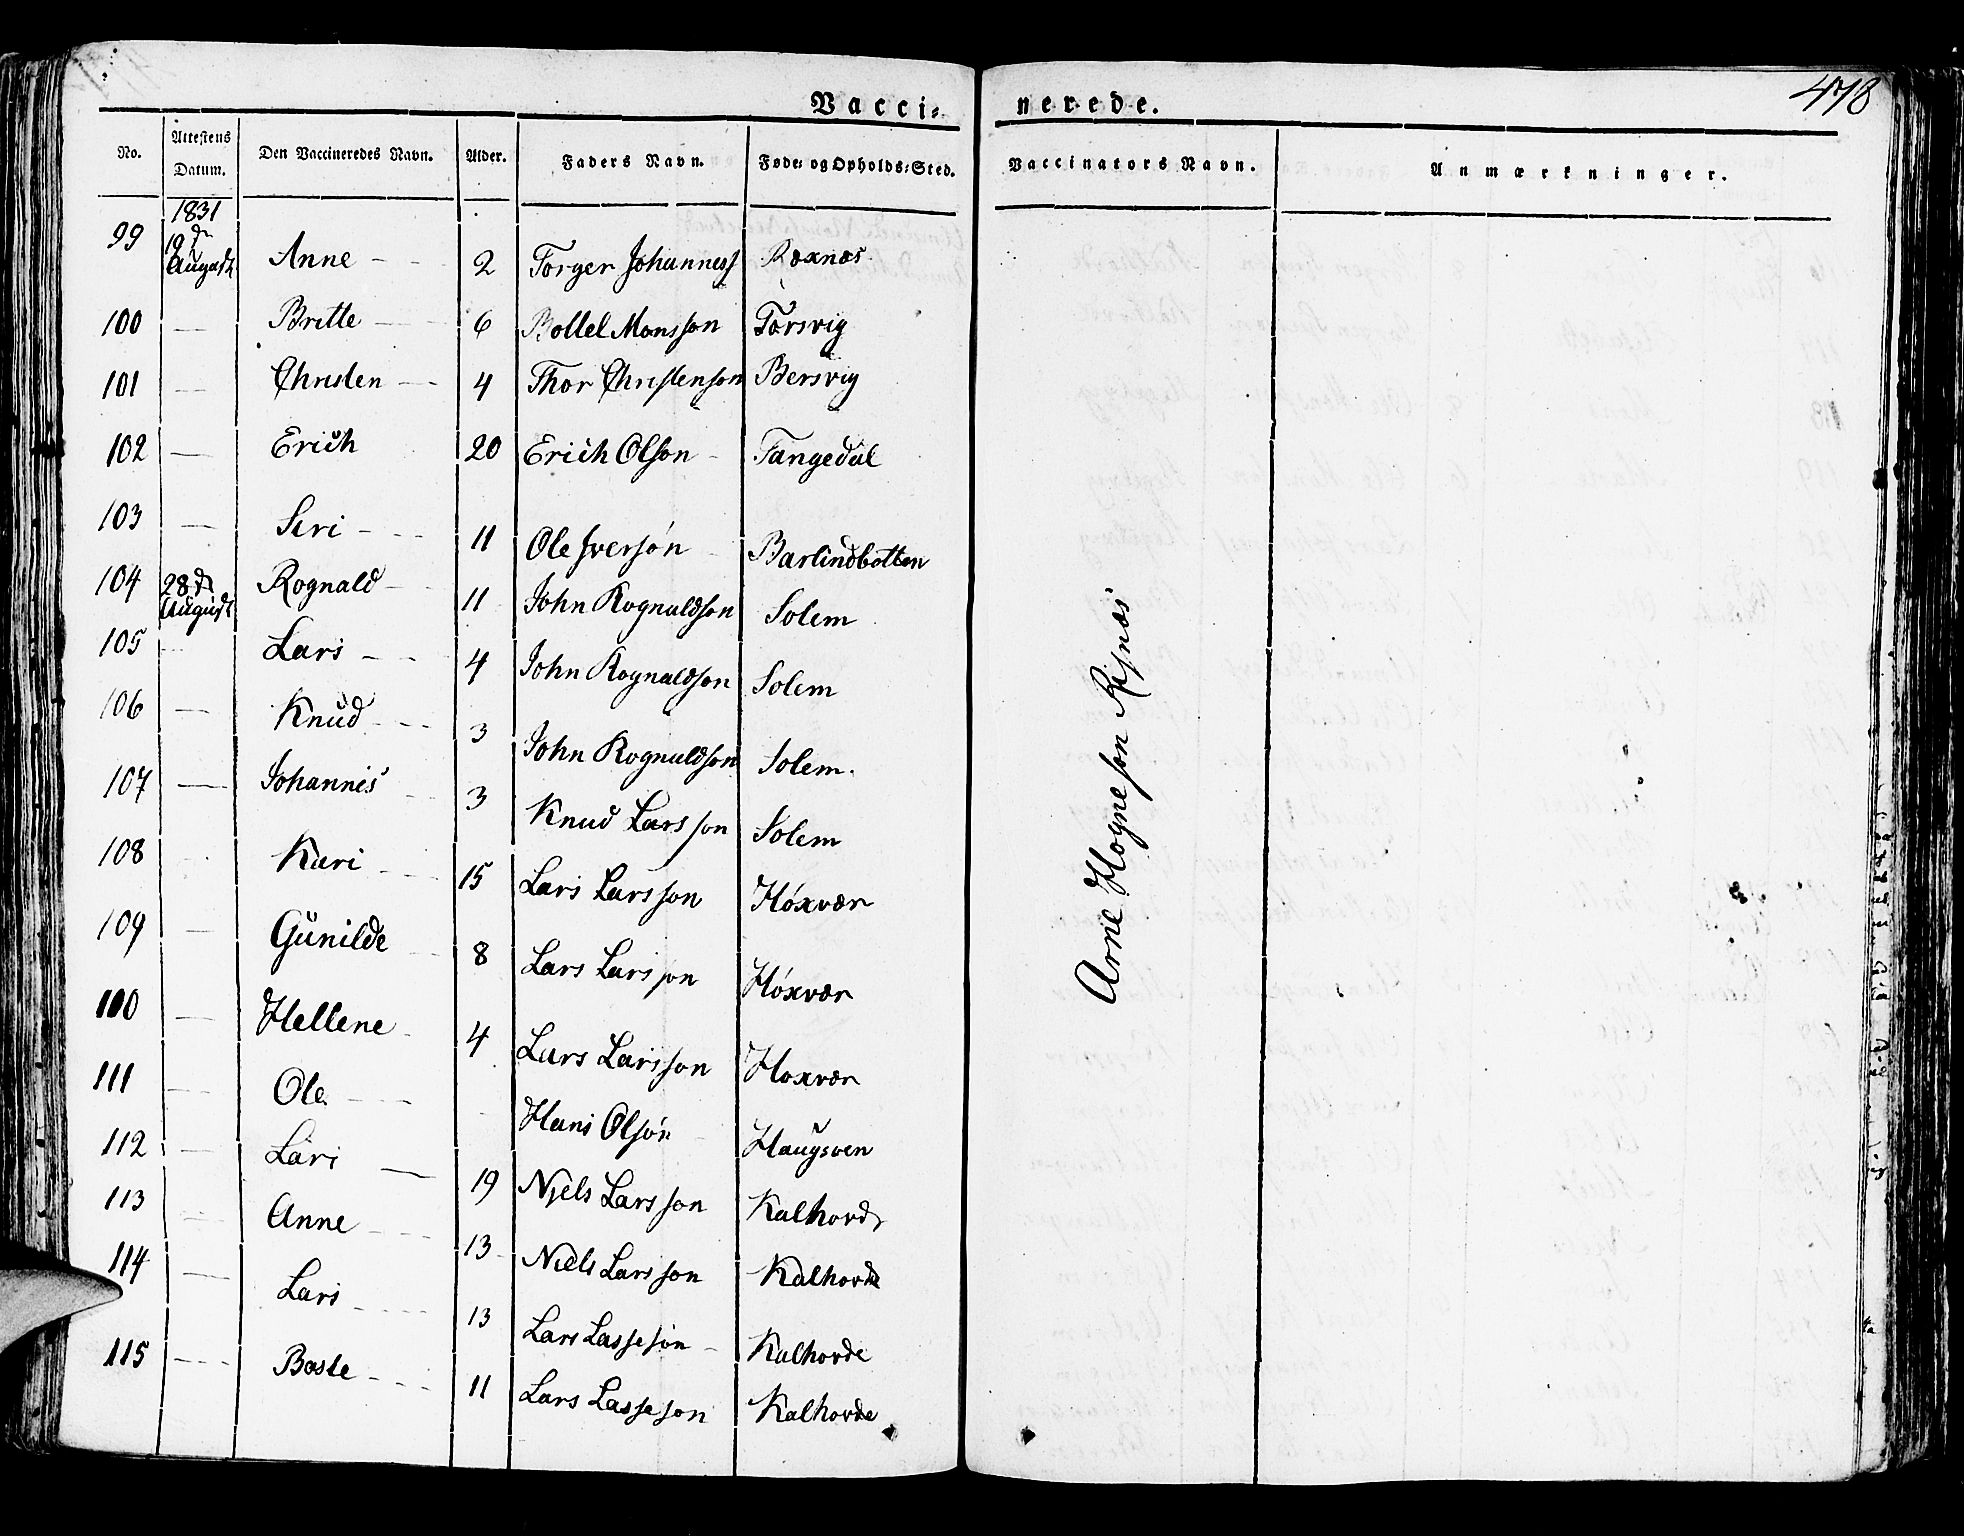 478
Vacci- nerede.
No. Attestens Datum. Den Vaccineredes Navn. Alder. Faders Navn. Føde- og Opholds-Sted. Vaccinators Navn. Anmærkninger.
1831
99 19de August Anne - - 2 Torger Johanness Røxnæs
100 — Britte - - 6 Bottel Monsson Torsvig
101 — Christen - - 4 Thor Christenson Bersvig
102 — Erich 20 Erich Olson - Tangedal
103 — Seri - - - 11 Ole Iversøn - Barlindbotten
104 28de August Rognald - - 11 John Rognaldson Solem
105 - - - Lars - - 4 John Rognaldson Solem
106 — Knud - - - 3 John Rognaldson Solem.
107 — Johannes - - 3 Knud Larsson Solem
108 Kari - - - 15 Lars Larsson Höxvær
109 — Gunilde - - 8 Lars Larsson Höxvær
110 — Hellene - 4 Lars Larsson Hoxvær
111 — Ole - - - - Hans Olsøn - Haugsven
112 — Lari — 19 Niels Larsson Kalhovde
113 — Anne - - - 13 Niels Larsson Kalhovde
114 — Lars - - - - 13 Lars Lassesøn - Kalhovde
115 - - - Boste - - - 11 Lars Lasseson Kalhovde
Arne Hogneson Risnæs